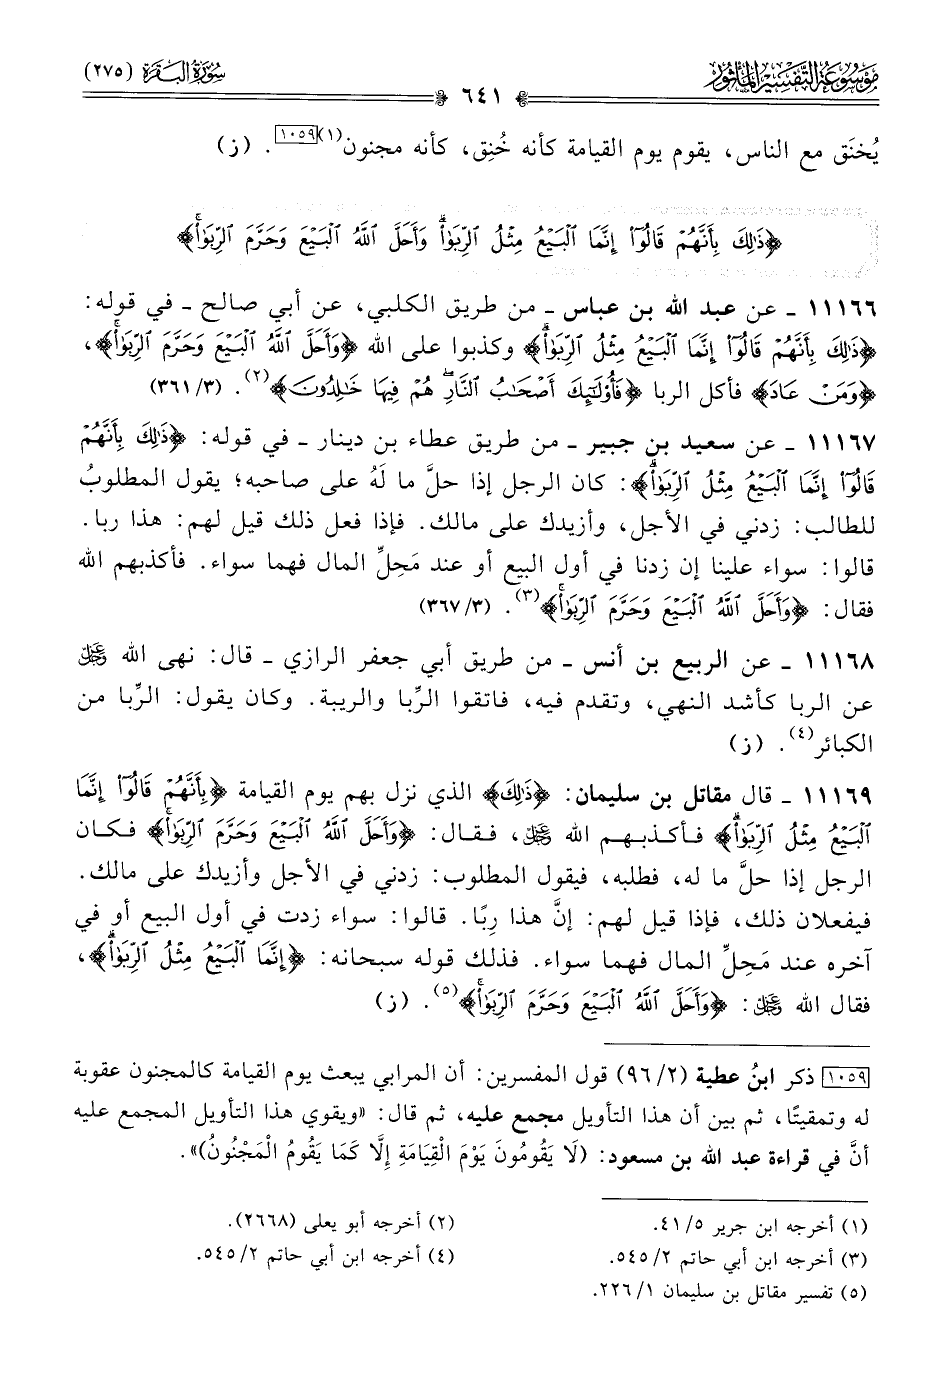 مَوْسُوعَةُ التَّفْسِيرِ المَأْثُور
سُورَةُ البَقَرَة (٢٧٥)
٦٤١
يُخنَق مع الناس، يقوم يوم القيامة كأنه خُنِق، كأنه مجنون(١)[١٠٥٩]. (ز)
﴿ذَٰلِكَ بِأَنَّهُمْ قَالُوٓا۟ إِنَّمَا ٱلْبَيْعُ مِثْلُ ٱلرِّبَوٰا۟ۗ وَأَحَلَّ ٱللَّهُ ٱلْبَيْعَ وَحَرَّمَ ٱلرِّبَوٰا۟ۚ﴾
١١١٦٦ - عن عبد الله بن عباس - من طريق الكلبي، عن أبي صالح - في قوله:
﴿ذَٰلِكَ بِأَنَّهُمْ قَالُوٓا۟ إِنَّمَا ٱلْبَيْعُ مِثْلُ ٱلرِّبَوٰا۟ۗ﴾ وكذبوا على الله ﴿وَأَحَلَّ ٱللَّهُ ٱلْبَيْعَ وَحَرَّمَ ٱلرِّبَوٰا۟ۚ﴾،
﴿وَمَنْ عَادَ﴾ فأكل الربا ﴿فَأُو۟لَٰٓئِكَ أَصْحَٰبُ ٱلنَّارِۖ هُمْ فِيهَا خَٰلِدُونَ﴾(٢). (٣٦١/٣)
١١١٦٧ - عن سعيد بن جبير - من طريق عطاء بن دينار - في قوله: ﴿ذَٰلِكَ بِأَنَّهُمْ
قَالُوٓا۟ إِنَّمَا ٱلْبَيْعُ مِثْلُ ٱلرِّبَوٰا۟ۗ﴾: كان الرجل إذا حلَّ ما لَهُ على صاحبه؛ يقول المطلوبُ
للطالب: زدني في الأجل، وأزيدك على مالك. فإذا فعل ذلك قيل لهم: هذا ربا.
قالوا: سواء علينا إن زدنا في أول البيع أو عند مَحِلِّ المال فهما سواء. فأكذبهم الله
فقال: ﴿وَأَحَلَّ ٱللَّهُ ٱلْبَيْعَ وَحَرَّمَ ٱلرِّبَوٰا۟ۚ﴾(٣). (٣٦٧/٣)
١١١٦٨ - عن الربيع بن أنس - من طريق أبي جعفر الرازي - قال: نهى الله ﷿
عن الربا كأشد النهي، وتقدم فيه، فاتقوا الرِّبا والريبة. وكان يقول: الرِّبا من
الكبائر(٤). (ز)
١١١٦٩ - قال مقاتل بن سليمان: ﴿ذَٰلِكَ﴾ الذي نزل بهم يوم القيامة ﴿بِأَنَّهُمْ قَالُوٓا۟ إِنَّمَا
ٱلْبَيْعُ مِثْلُ ٱلرِّبَوٰا۟ۗ﴾ فأكذبهم الله ﷿، فقال: ﴿وَأَحَلَّ ٱللَّهُ ٱلْبَيْعَ وَحَرَّمَ ٱلرِّبَوٰا۟ۚ﴾ فكان
الرجل إذا حلَّ ما له، فطلبه، فيقول المطلوب: زدني في الأجل وأزيدك على مالك.
فيفعلان ذلك، فإذا قيل لهم: إنَّ هذا رِبًا. قالوا: سواء زدت في أول البيع أو في
آخره عند مَحِلِّ المال فهما سواء. فذلك قوله سبحانه: ﴿إِنَّمَا ٱلْبَيْعُ مِثْلُ ٱلرِّبَوٰا۟ۗ﴾،
فقال الله ﷿: ﴿وَأَحَلَّ ٱللَّهُ ٱلْبَيْعَ وَحَرَّمَ ٱلرِّبَوٰا۟ۚ﴾(٥). (ز)
[١٠٥٩] ذكر ابنُ عطية (٩٦/٢) قول المفسرين: أن المرابي يبعث يوم القيامة كالمجنون عقوبة
له وتمقيتًا، ثم بين أن هذا التأويل مجمع عليه، ثم قال: «ويقوي هذا التأويل المجمع عليه
أنَّ في قراءة عبد الله بن مسعود: (لَا يَقُومُونَ يَوْمَ الْقِيَامَةِ إِلَّا كَمَا يَقُومُ الْمَجْنُونُ)».
(١) أخرجه ابن جرير ٤١/٥.
(٢) أخرجه أبو يعلى (٢٦٦٨).
(٣) أخرجه ابن أبي حاتم ٥٤٥/٢.
(٤) أخرجه ابن أبي حاتم ٥٤٥/٢.
(٥) تفسير مقاتل بن سليمان ٢٢٦/١.